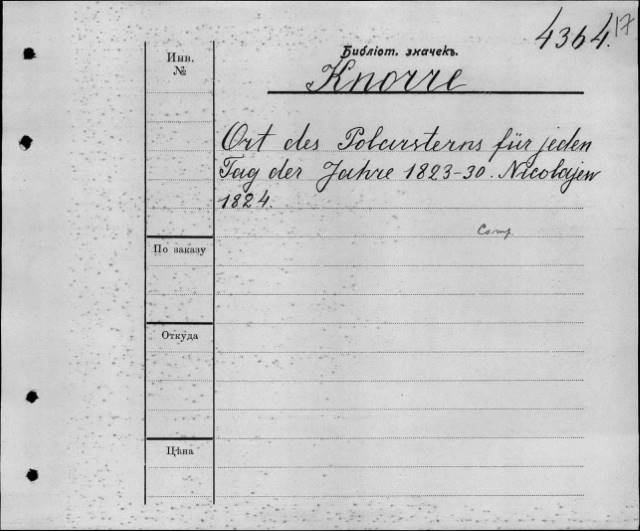 4364.17
Библіот. значекъ.
Инв.
№
Knorre
Ort des Polarsterns für jeden
Tag der Jahre 1823-30. Nicolajew
1824.
Comp
По заказу
Откуда
Цѣна